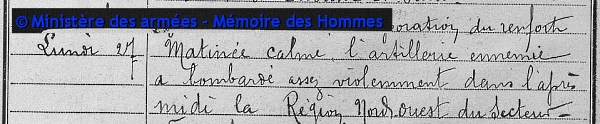 © Ministère des armées - Mémoire des Hommes
du renfort
Lundi 27 Matinée calme, l'artillerie ennemie
a bombardé assez violemment dans l'après
midi la Région Nord ouest du Secteur-